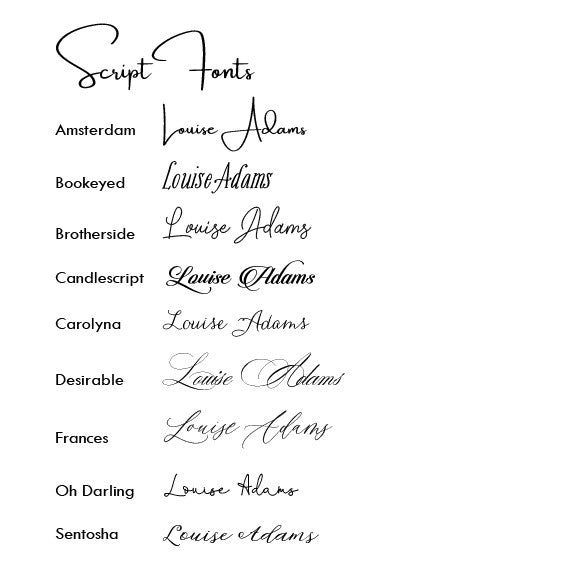 Script Fonts
Amsterdam Louise Adams
Bookeyed Louise Adams
Brotherside Louise Adams
Candlescript Louise Adams
Carolyna Louise Adams
Desirable Louise Adams
Frances Louise Adams
Oh Darling Louise Adams
Sentosha Louise Adams